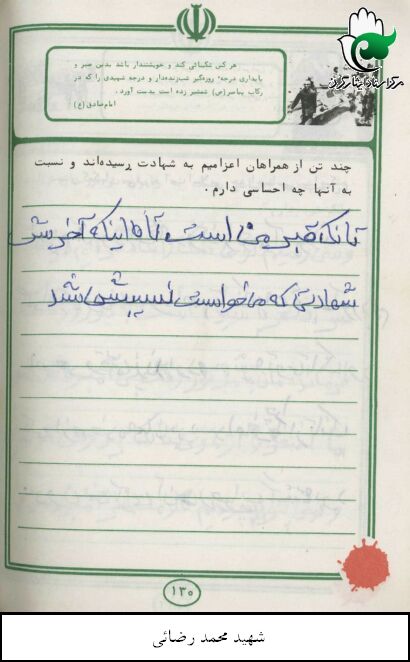 مرکز اسناد ایثارگران
هر کس شکیبائی کند و خویشتندار باشد بدین صبر و
پایداری درجه‌ء روزه‌گیر شب‌زنده‌دار و درجه شهیدی را که در
رکاب پیامبر(ص) شمشیر زده است بدست آورد.
امام صادق (ع)
چند تن از همراهان اعزامیم به شهادت رسیده‌اند و نسبت
به آنها چه احساسی دارم.
است تا اینکه آخرش
شهادتی که می‌خواست نسیبش شد
۱۳۰
شهید محمد رضائی